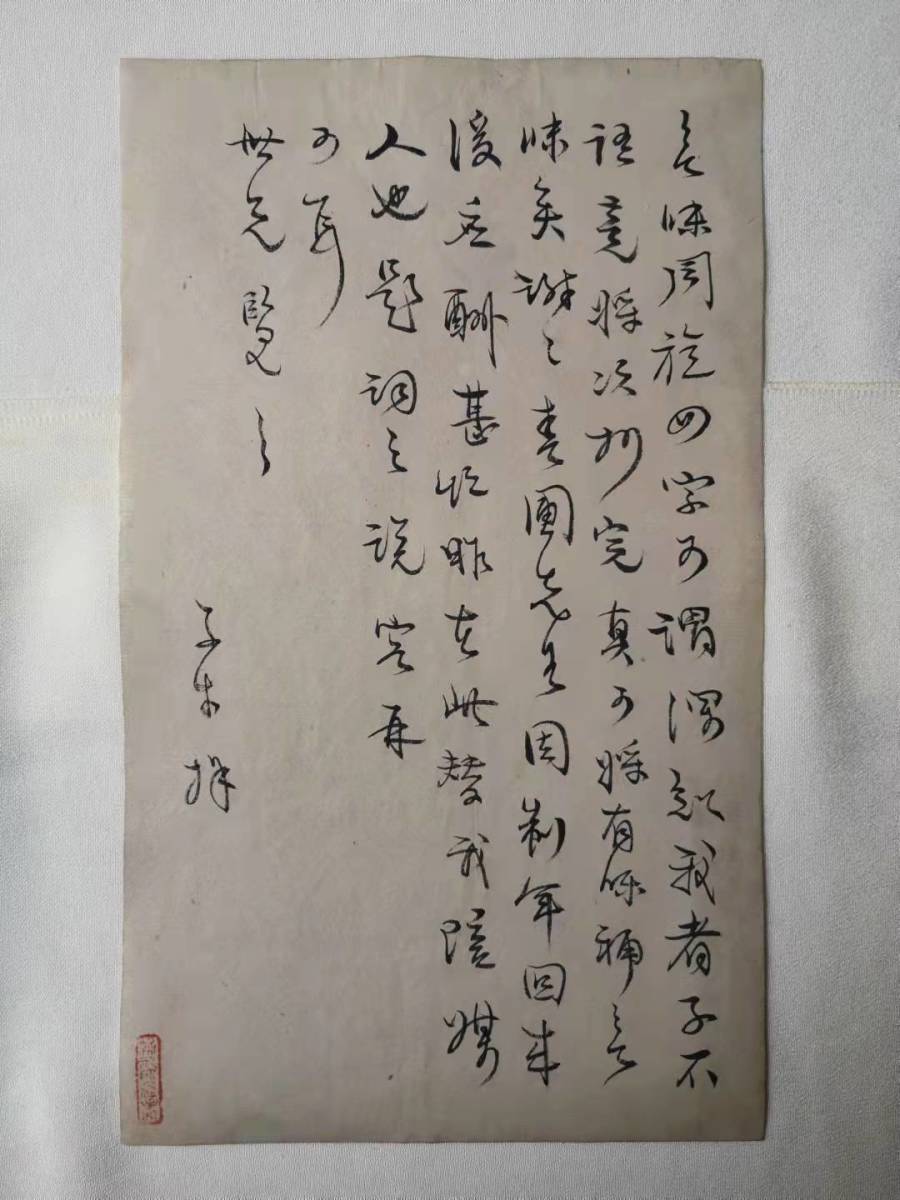 无味周旋四字可謂深知我者子不
語竟將次刊完真可將有味補无
味矣謝〻春圃先生因制軍回來
後應酬甚忙昨在此替我陪媒
人也題詞之説容再
可耳
世兄覽之
子才拜